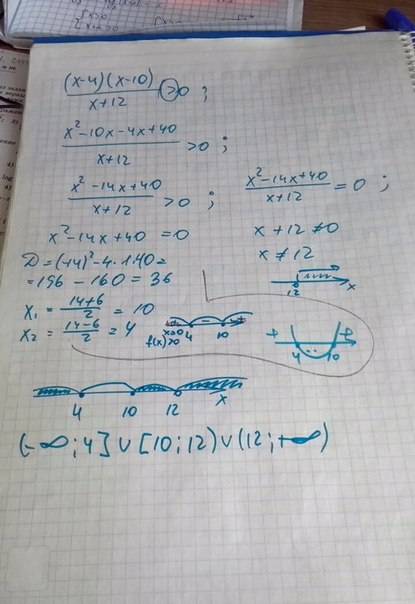 (x-4)(x-10) / x+12 >0 ;
x²-10x-4x+40 / x+12 >0 ;
x²-14x+40 / x+12 >0 ; x²-14x+40 / x+12 = 0 ;
x²-14x+40 =0 x+12 ≠0
x≠12
D=(-14)²-4·1·40=
=196-160=36
12 x
x₁=14+6/2=10
x₂=14-6/2=4
f(x)>0 4 - 10 +
+ 4 - 10 +
4 10 12 x
(-∞;4]∪[10;12)∪(12;+∞)